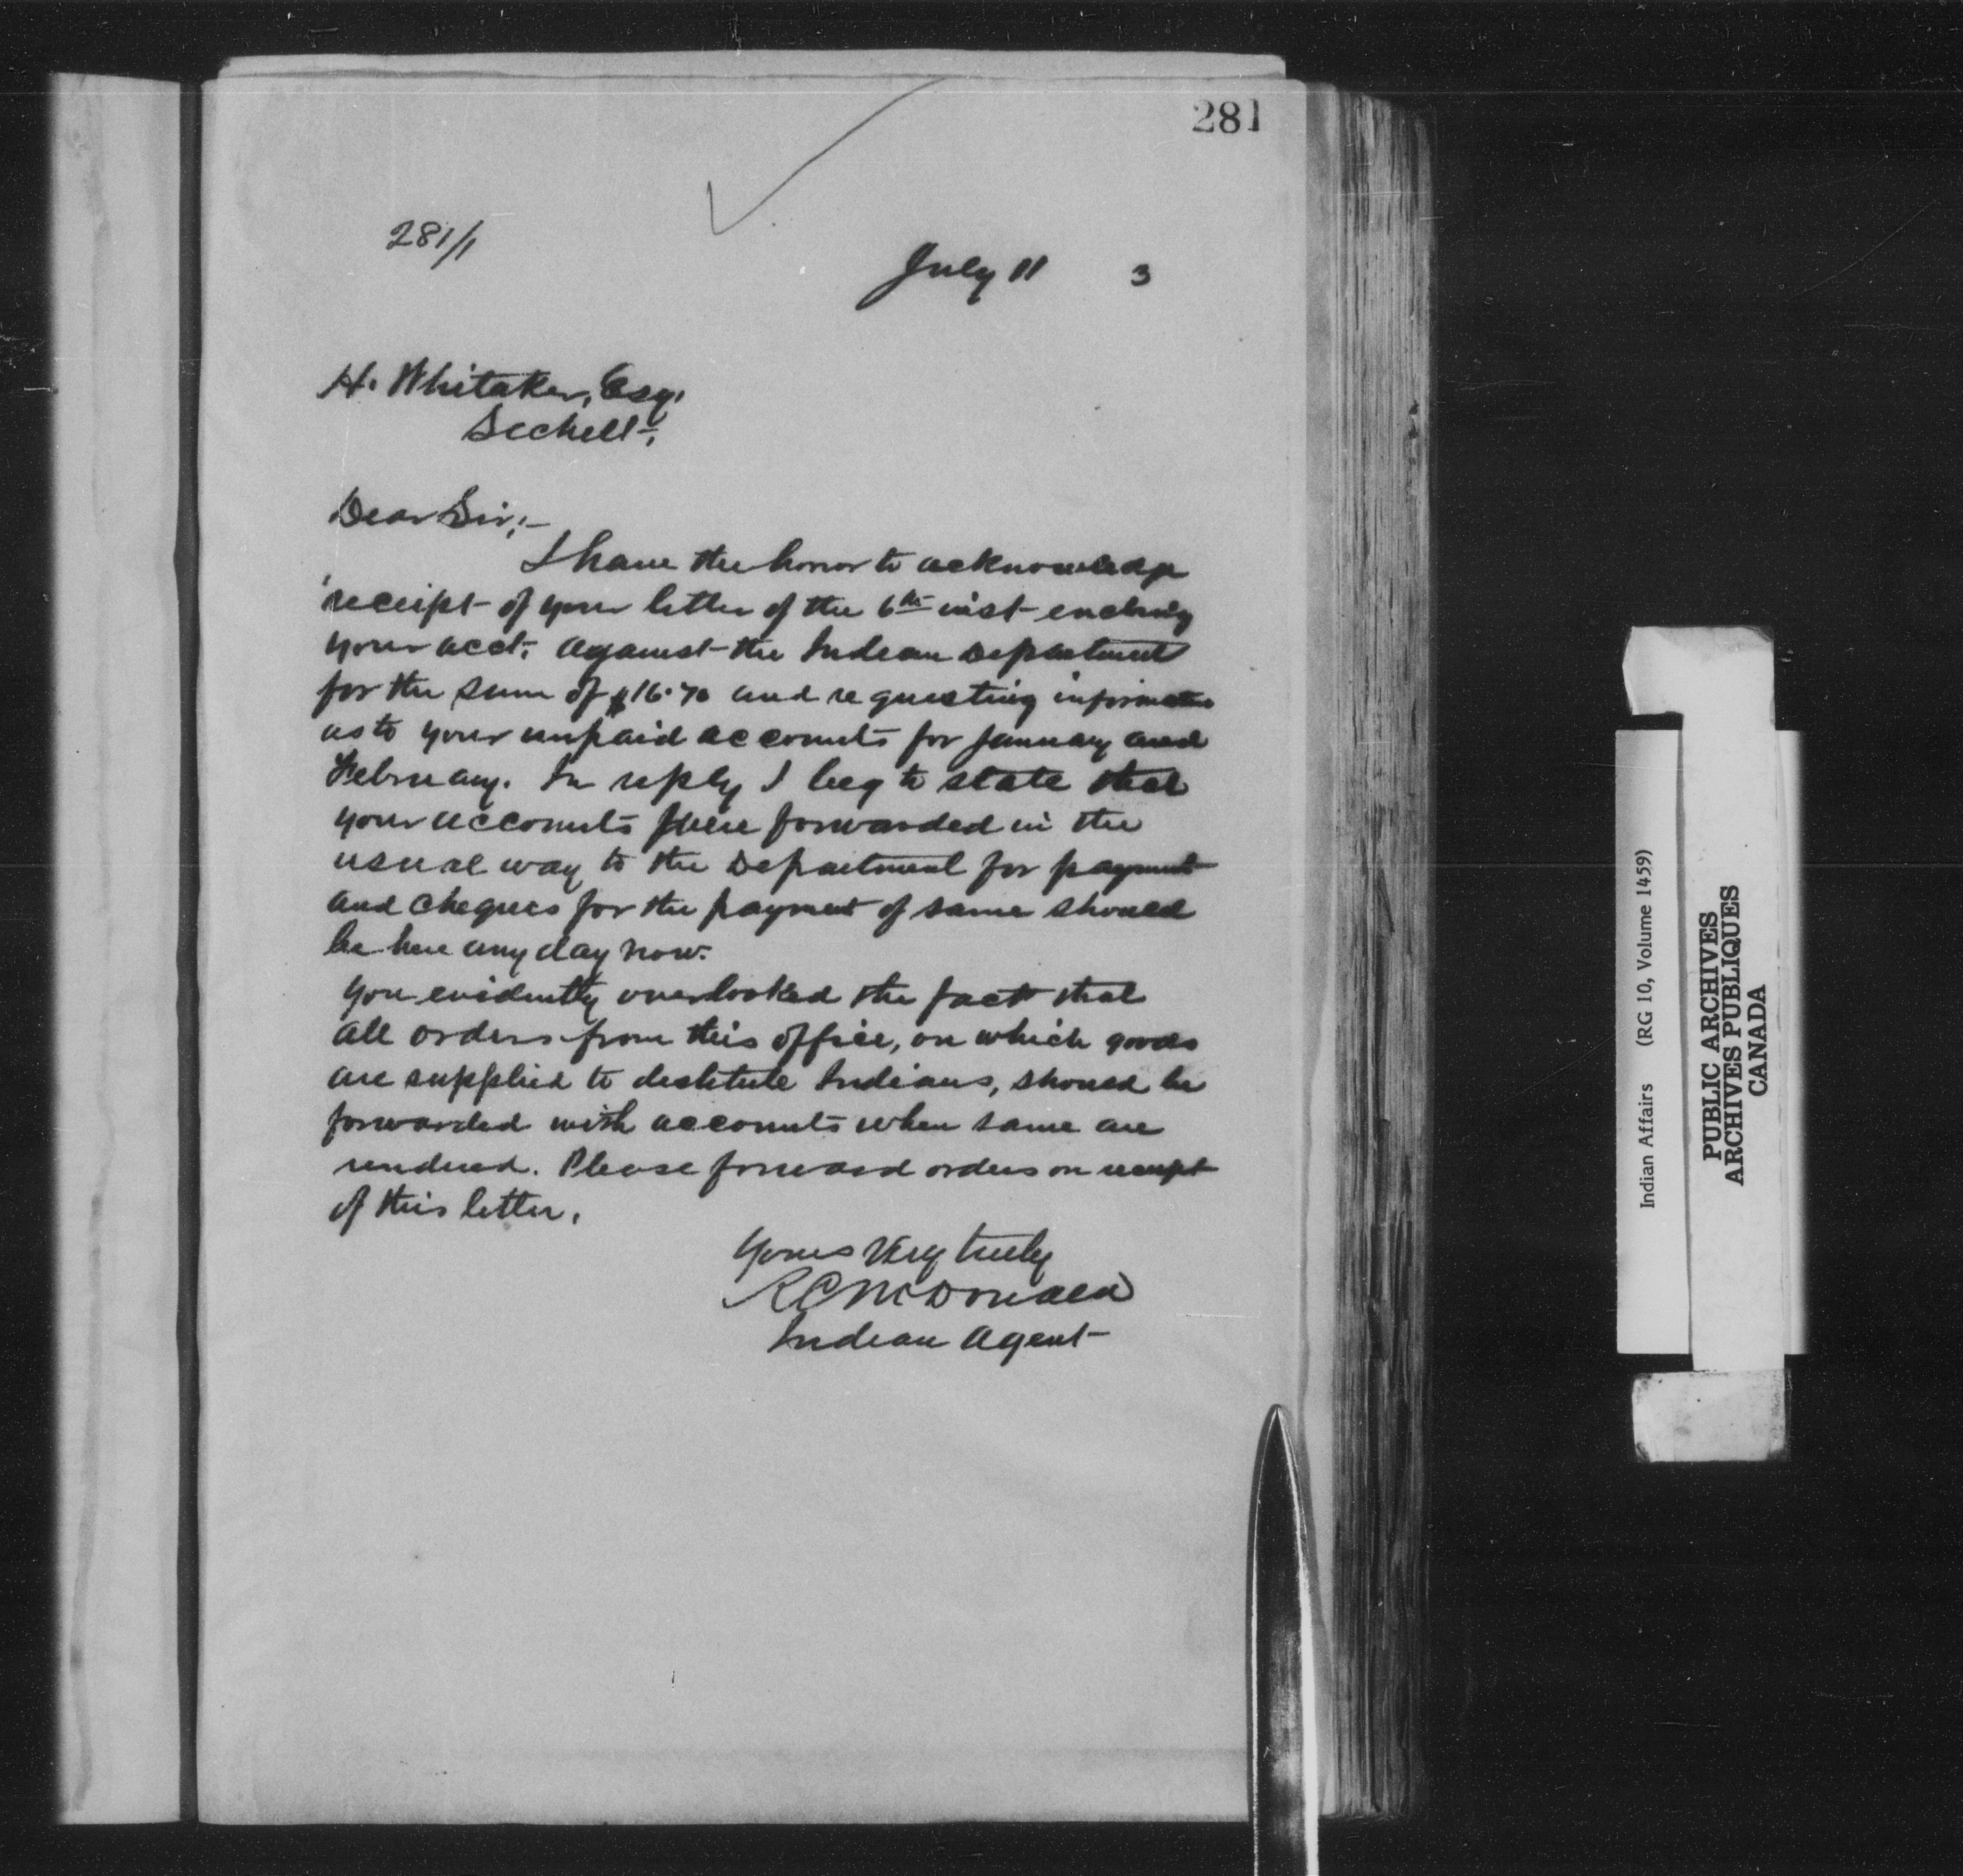 281
281/1
July 11 3
H. Whitaker, Esq.
Sechelt,
Dear Sir:-
I have the honor to acknowledge
receipt of your letter of the 6th inst enclosing
your acct. against the Indian Department
for the sum of $16.70 and requesting information
as to your unpaid accounts for January and
February. In reply I beg to state that
your accounts were forwarded in the
usual way to the Department for payment
and cheques for the payment of same should
be here any day now.
You evidently overlooked the fact that
all orders from this office, on which goods
are supplied to destitute Indians, should be
forwarded with accounts when same are
rendered. Please forward orders on receipt
of this letter.
Yours very truly
R C McDonald
Indian Agent
Indian Affairs (RG 10, Volume 1459)
PUBLIC ARCHIVES
ARCHIVES PUBLIQUES
CANADA